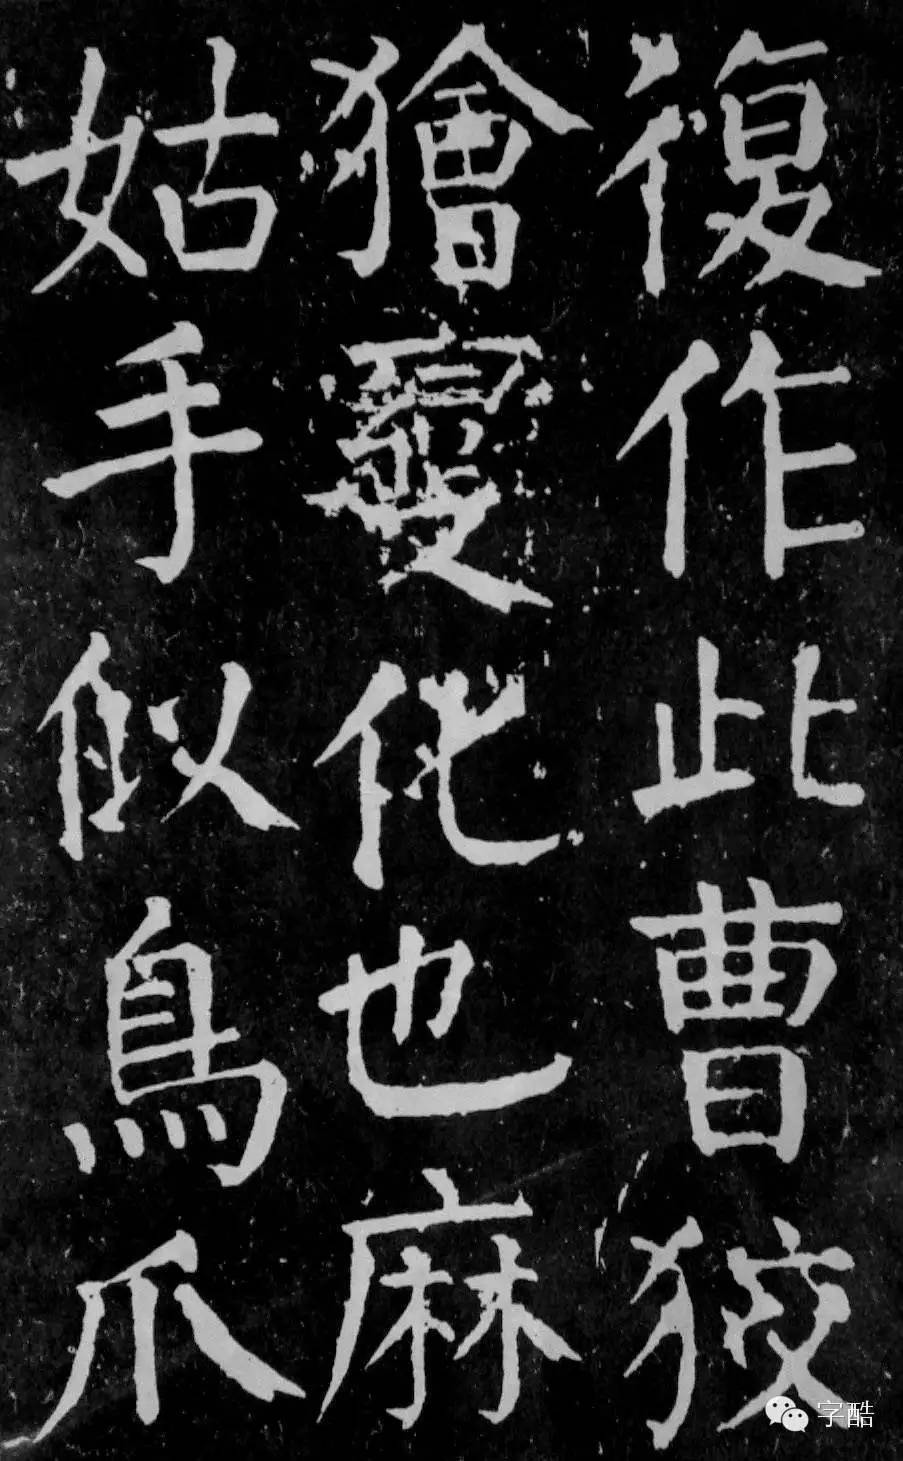 復作此曹狡
獪變化也麻
姑手似鳥爪
字酷